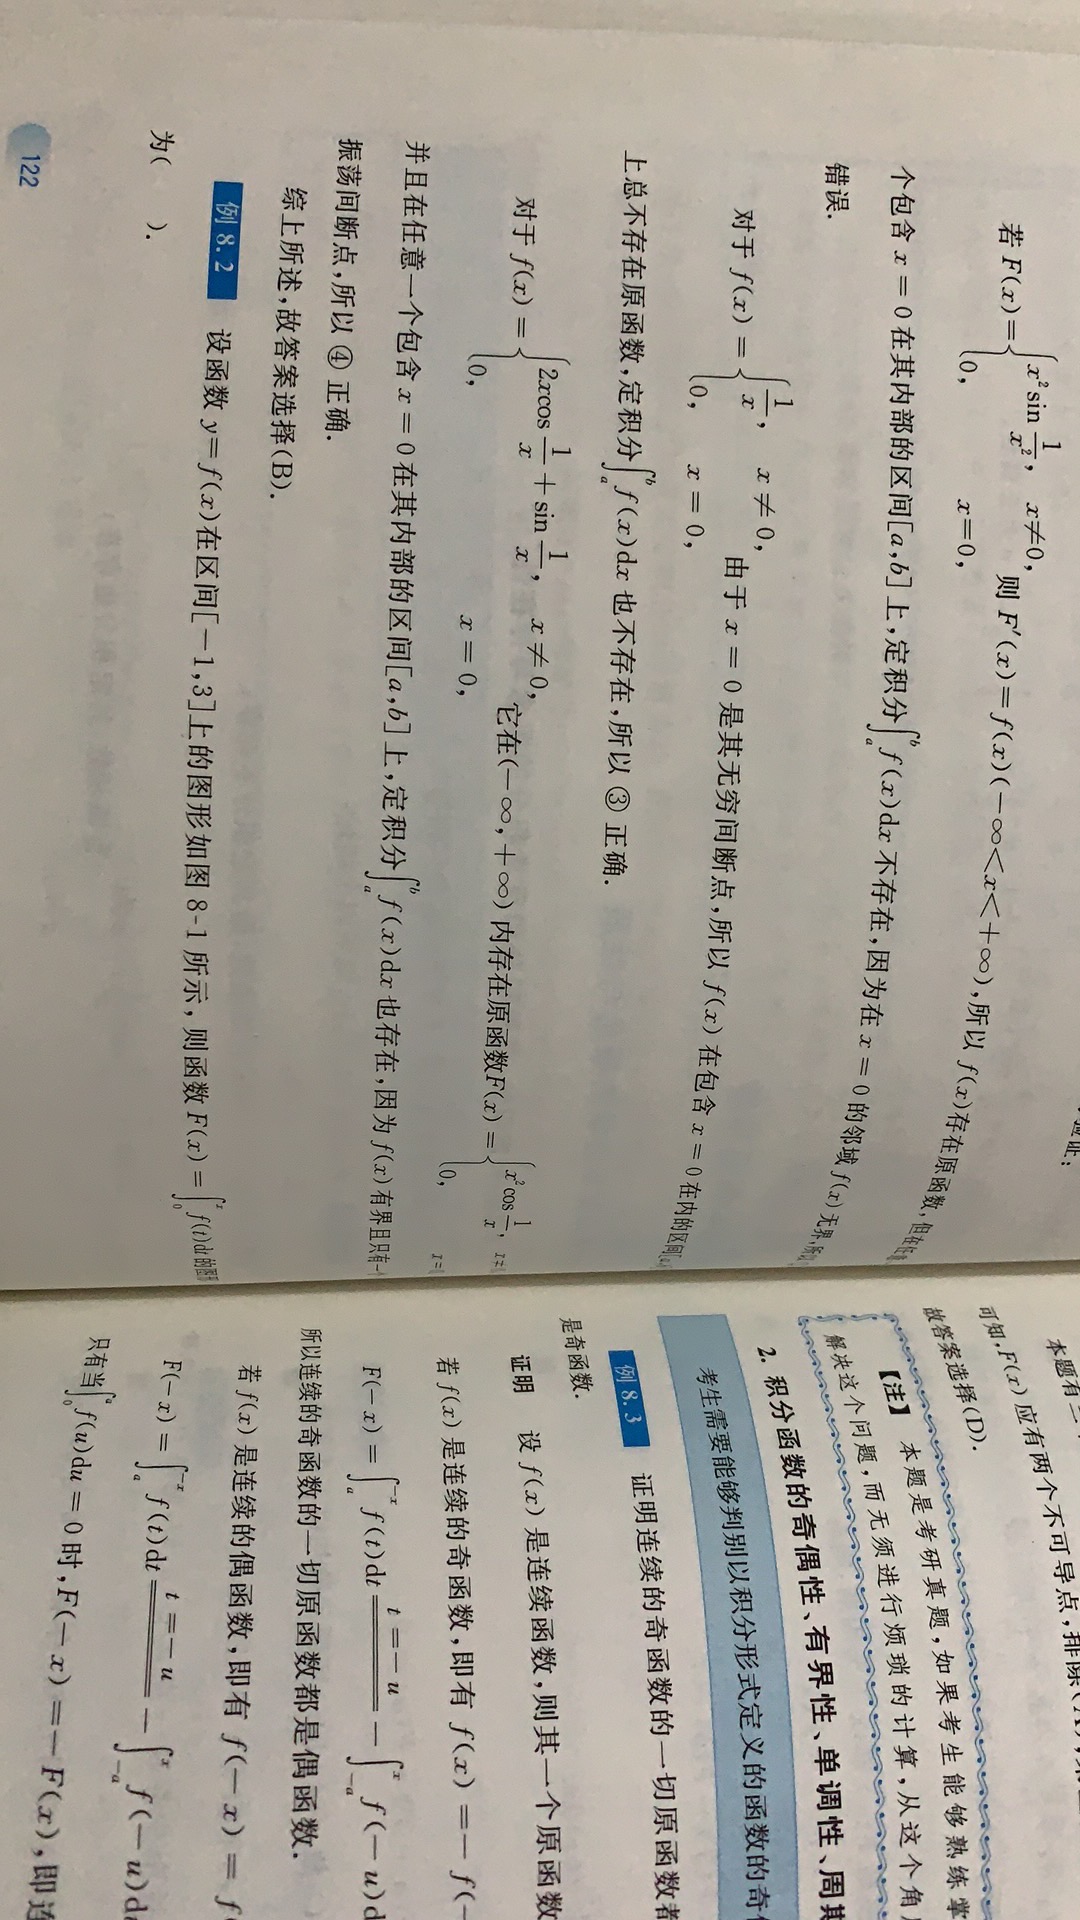 验证:
若 F(x)={x² sin 1/x², x≠0, 0, x=0, 则 F′(x)=f(x)(−∞<x<+∞),所以 f(x)存在原函数,但在任意
个包含 x=0 在其内部的区间[a,b]上,定积分∫ₐᵇ f(x)dx 不存在,因为在 x=0 的邻域 f(x) 无界,所以
错误.
对于 f(x)={1/x, x≠0, 0, x=0, 由于 x=0 是其无穷间断点,所以 f(x) 在包含 x=0 在内的区间[a,
上总不存在原函数,定积分∫ₐᵇ f(x)dx 也不存在,所以 ③ 正确.
对于 f(x)={2xcos 1/x + sin 1/x, x≠0, 0, x=0, 它在(−∞,+∞) 内存在原函数F(x)={x²cos 1/x, x≠ 0, x=
并且在任意一个包含 x=0 在其内部的区间[a,b]上,定积分∫ₐᵇ f(x)dx也存在,因为 f(x) 有界且只有一
振荡间断点,所以 ④ 正确.
综上所述,故答案选择(B).
例 8.2 设函数 y=f(x)在区间[−1,3]上的图形如图 8-1 所示,则函数 F(x)=∫₀ˣ f(t)dt 的图形
为( ).
122
本题有三
可知,F(x) 应有两个不可导点,排除
故答案选择(D).
【注】 本题是考研真题,如果考生能够熟练掌
解决这个问题,而无须进行烦琐的计算,从这个角
2. 积分函数的奇偶性、有界性、单调性、周期
考生需要能够判别以积分形式定义的函数的奇
例 8.3 证明连续的奇函数的一切原函数者
是奇函数.
证明 设 f(x) 是连续函数,则其一个原函数
若 f(x) 是连续的奇函数,即有 f(x)=−f(−
F(−x)=∫ₐ⁻ˣ f(t)dt (t=−u) −∫₋ₐˣ f(−u)d
所以连续的奇函数的一切原函数都是偶函数.
若 f(x) 是连续的偶函数,即有 f(−x)=f
F(−x)=∫ₐ⁻ˣ f(t)dt (t=−u) −∫₋ₐˣ f(−u)du
只有当∫₀ᵃ f(u)du=0 时,F(−x)=−F(x),即连